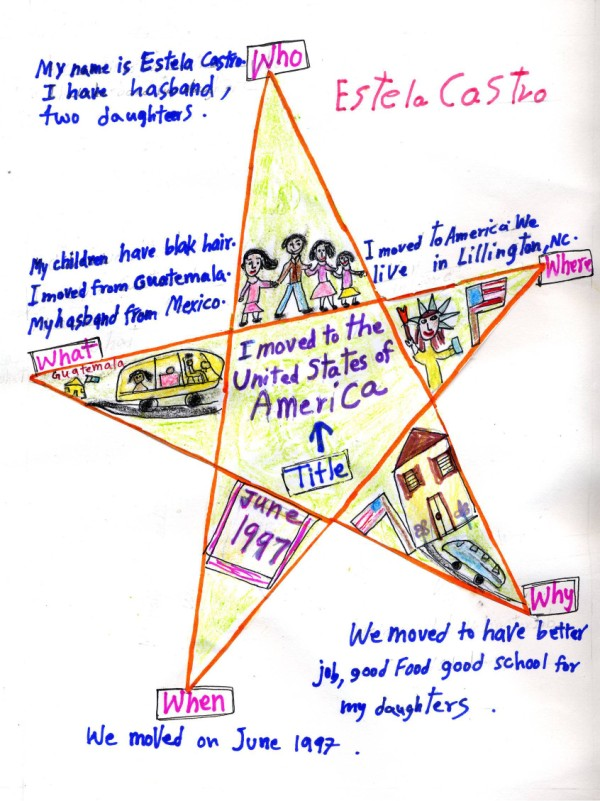 Who
My name is Estela Castro.
I have hasband,
two daughters.
Estela Castro
My children have blak hair.
I moved from Guatemala.
My hasband from Mexico.
I moved to America We
live in Lillington, NC.
Where
What
Guatemala
I moved to the
United States of
America
Title
June
1997
Why
We moved to have better
job, good Food good school for
my daughters.
When
We moved on June 1997.